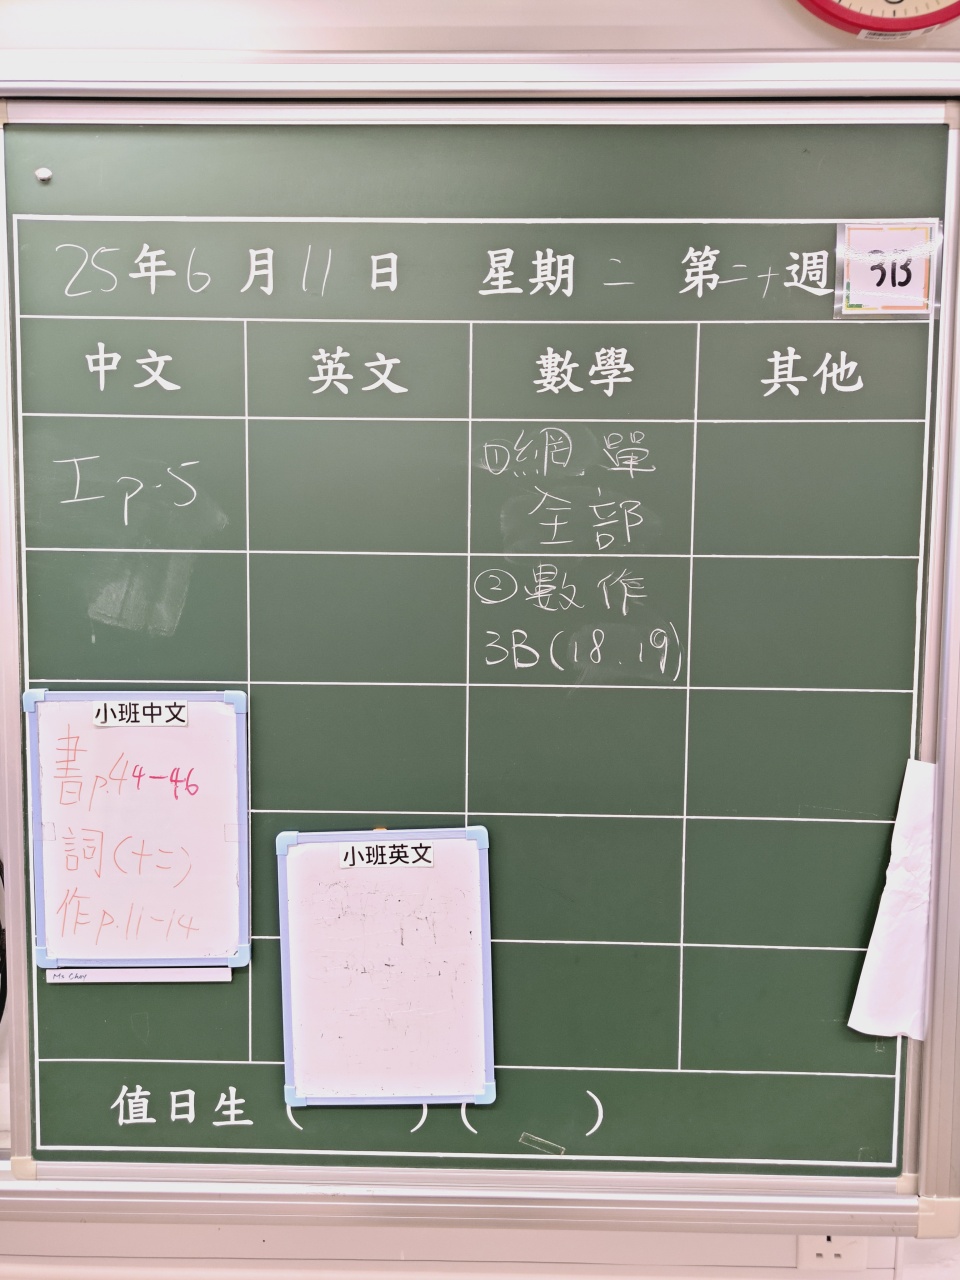 25年6月11日 星期二 第二十週 3B
中文 英文 數學 其他
工 p.5
①網單
全部
②數作
3B(18.19)
小班中文
書p.44-46
詞(十二)
作p.11-14
小班英文
值日生( )( )